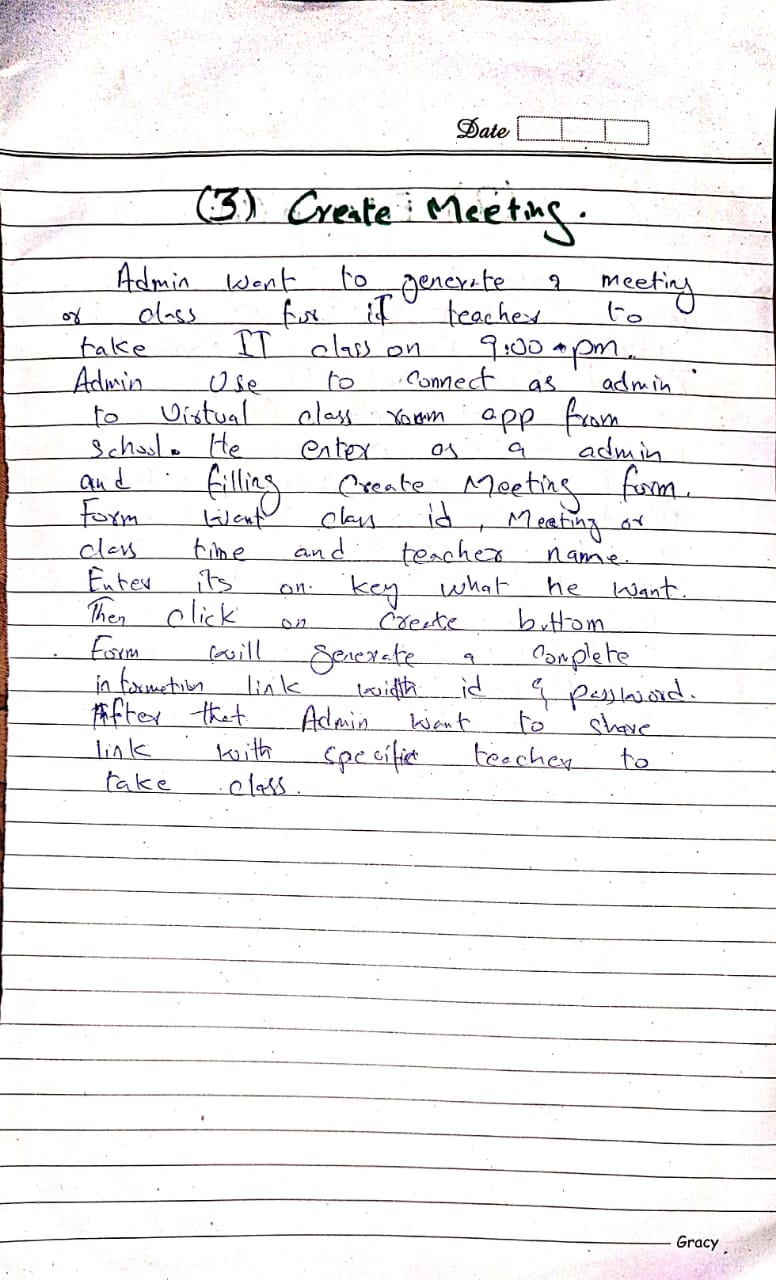 Date
(3) Create Meeting.
Admin want to generate a meeting
or class for it teacher to
take IT class on 9:00 pm.
Admin Use to Connect as admin
to Virtual class room app from
School. He enter as a admin
and filling Create Meeting form.
Form want class id, Meeting or
class time and teacher name.
Enter its on key what he want.
Then click on Create buttom
Form will generate a Complete
information link width id & password.
After that Admin want to share
link with specific teacher to
take class.
Gracy